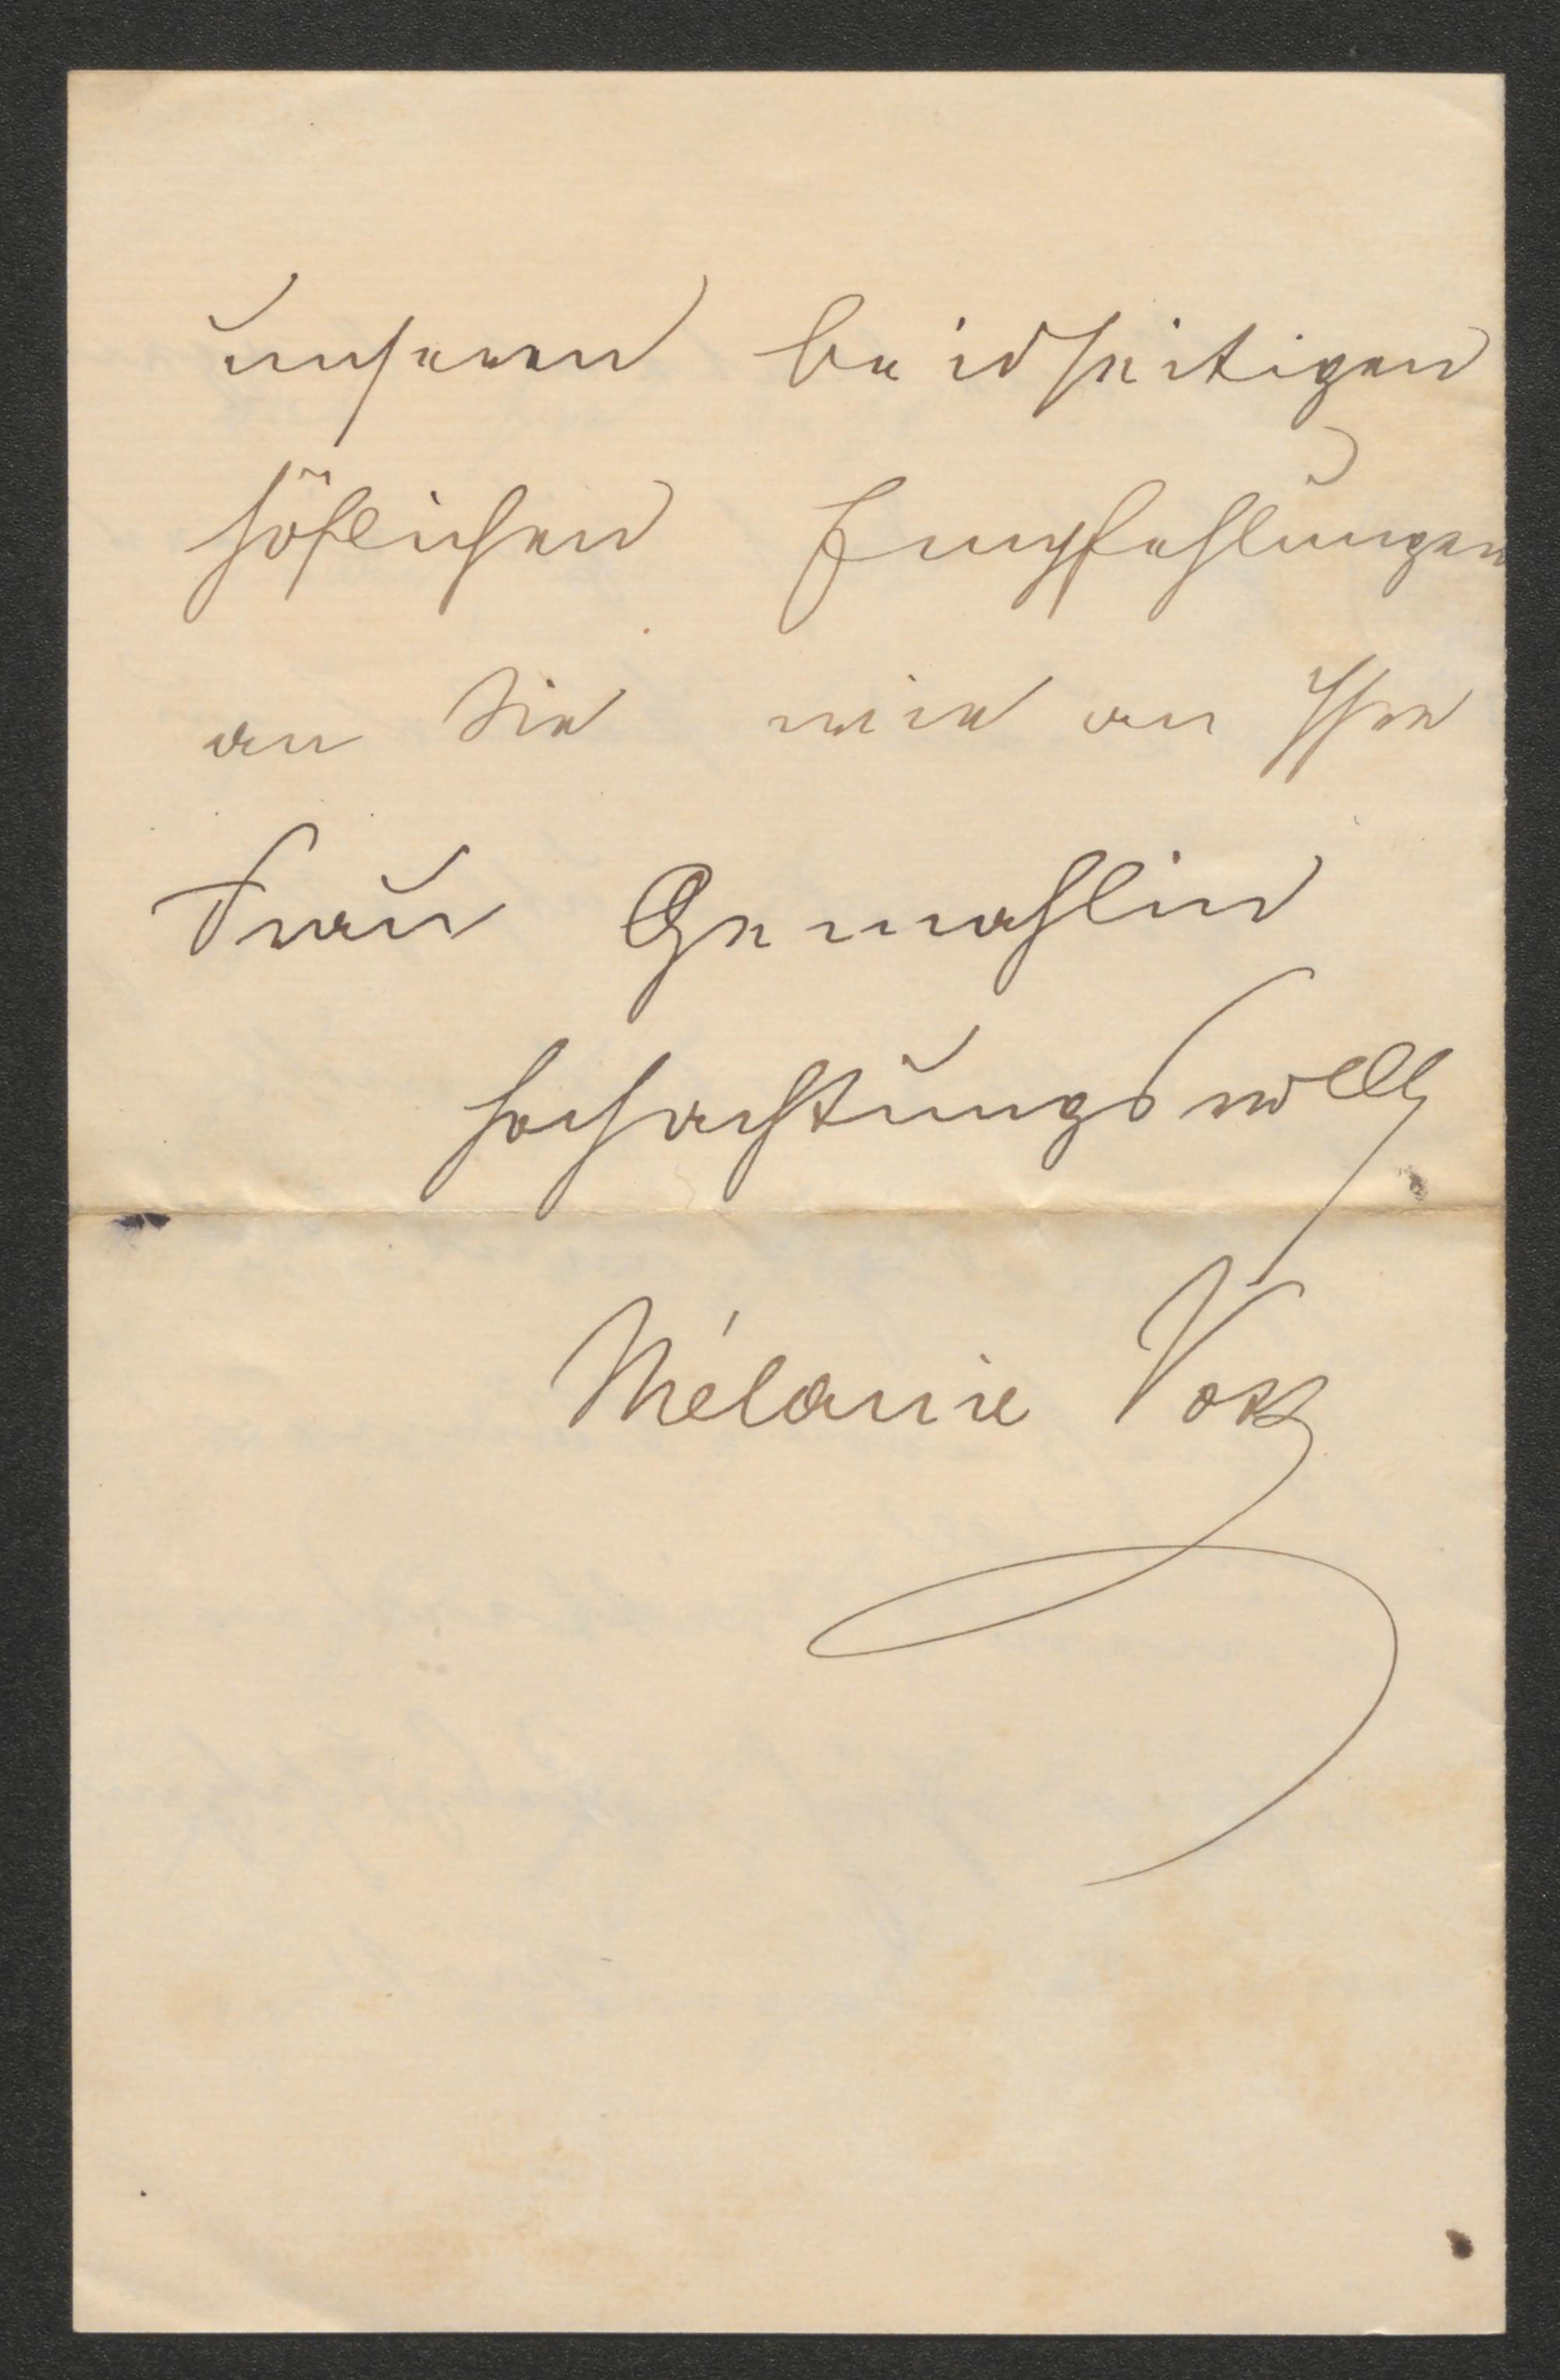 unseren beidseitigen
höflichen Empfehlungen
an Sie wie an Ihre
Frau Gemahlin
hochachtungsvoll
Mélanie Voß